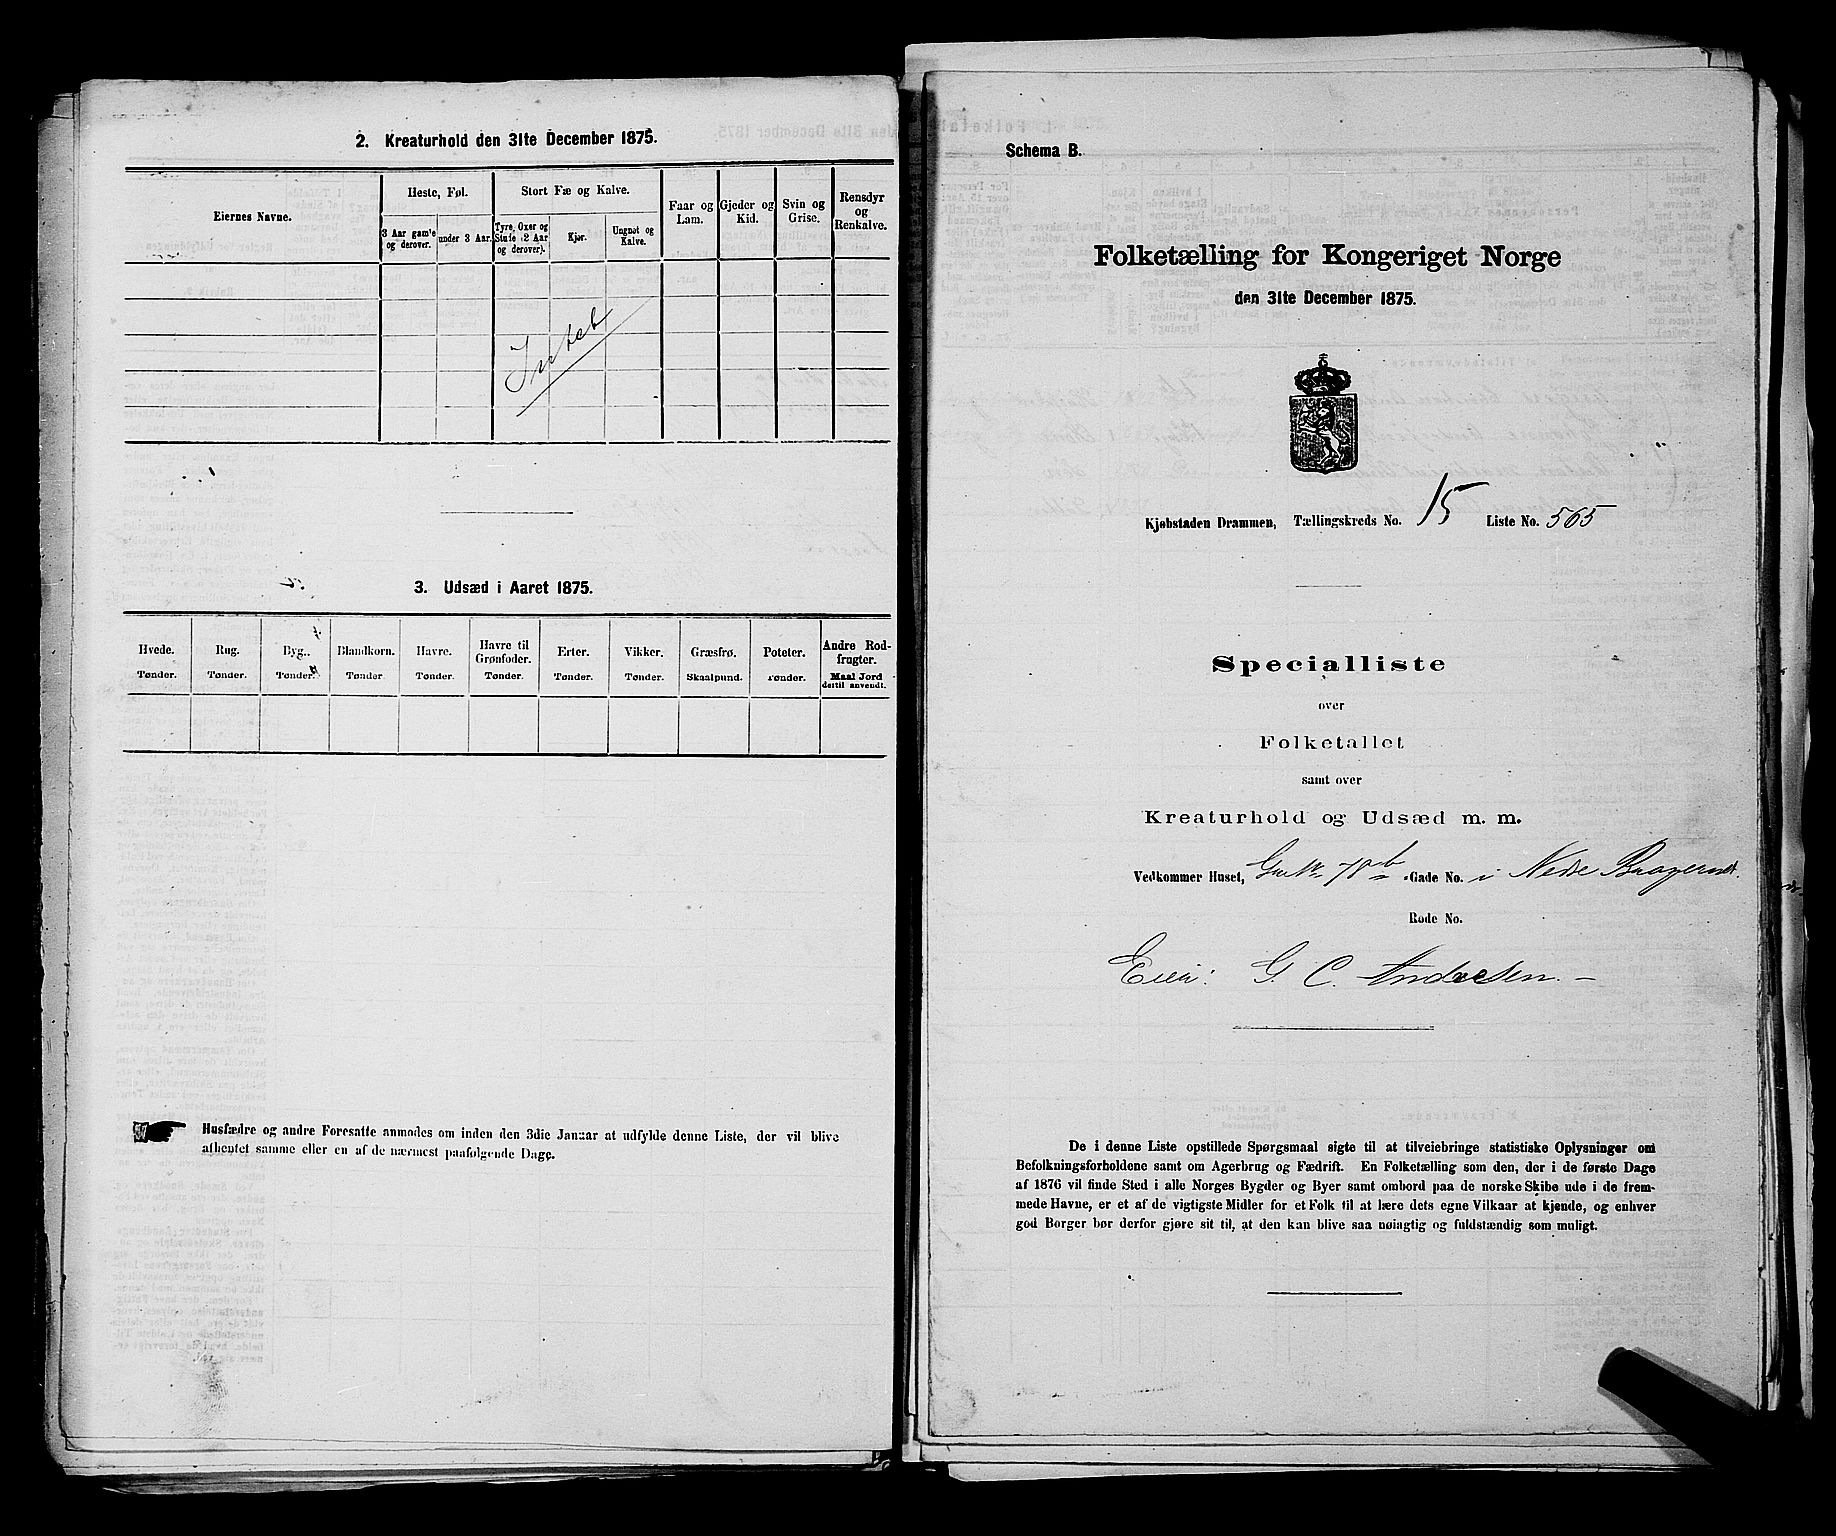 2. Kreaturhold den 31te December 1875.
Eiernes Navne.
Heste, Føl.
Stort Fæ og Kalve.
Faar og Lam.
Gjeder og Kid.
Svin og Grise.
Rensdyr og Renkalve.
3 Aar gamle og derover.
under 3 Aar.
Tyre, Oxer og Stude (2 Aar og derover).
Kjør.
Ungnøt og Kalve.
Intet
3. Udsæd i Aaret 1875.
Hvede. Tønder.
Rug. Tønder.
Byg. Tønder.
Blandkorn. Tønder.
Havre. Tønder.
Havre til Grønfoder. Tønder.
Erter. Tønder.
Vikker. Tønder.
Græsfrø. Skaalpund.
Poteter. Tønder.
Andre Rodfrugter. Maal Jord dertil anvendt.
Husfædre og andre Foresatte anmodes om inden den 3die Januar at udfylde denne Liste, der vil blive
afhentet samme eller en af de nærmest paafølgende Dage.
Schema B.
Folketælling for Kongeriget Norge
den 31te December 1875.
Kjøbstaden Drammen, Tællingskreds No. 15 Liste No. 565
Specialliste
over
Folketallet
samt over
Kreaturhold og Udsæd m. m.
Vedkommer Huset, 78b Gade No. i Nedre Bragernes
Rode No.
Eier: G. C. Andersen.
De i denne Liste opstillede Spørgsmaal sigte til at tilveiebringe statistiske Oplysninger om
Befolkningsforholdene samt om Agerbrug og Fædrift. En Folketælling som den, der i de første Dage
af 1876 vil finde Sted i alle Norges Bygder og Byer samt ombord paa de norske Skibe ude i de frem-
mede Havne, er et af de vigtigste Midler for et Folk til at lære dets egne Vilkaar at kjende, og enhver
god Borger bør derfor gjøre sit til, at den kan blive saa nøiagtig og fuldstændig som muligt.